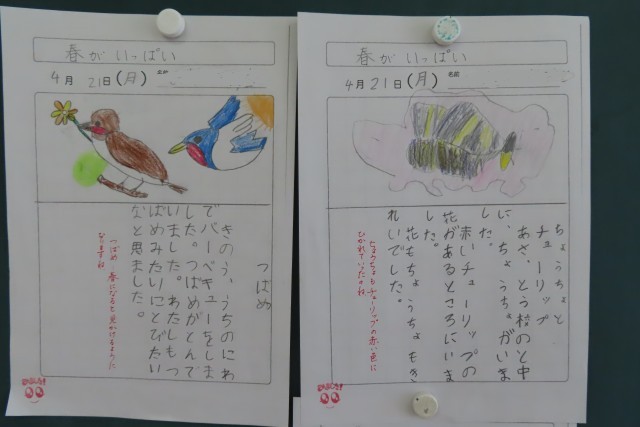 春がいっぱい
4月21日(月)
つばめ
きのう、うちのにわ
でバーベキューをしま
した。つばめがとんで
いました。わたしもつ
ばめみたいにとびたい
なと思ました。
つばめ 春になると見かけるように
なりますね
春がいっぱい
4月21日(月)
名前
ちょうちょと
チューリップ
あさ、とう校のと中
に、ちょうちょがいま
した。
赤いチューリップの
花があるところにいま
した。
花もちょうちょもき
れいでした。
ちょうちょもチューリップの赤い色に
ひかれていたのね